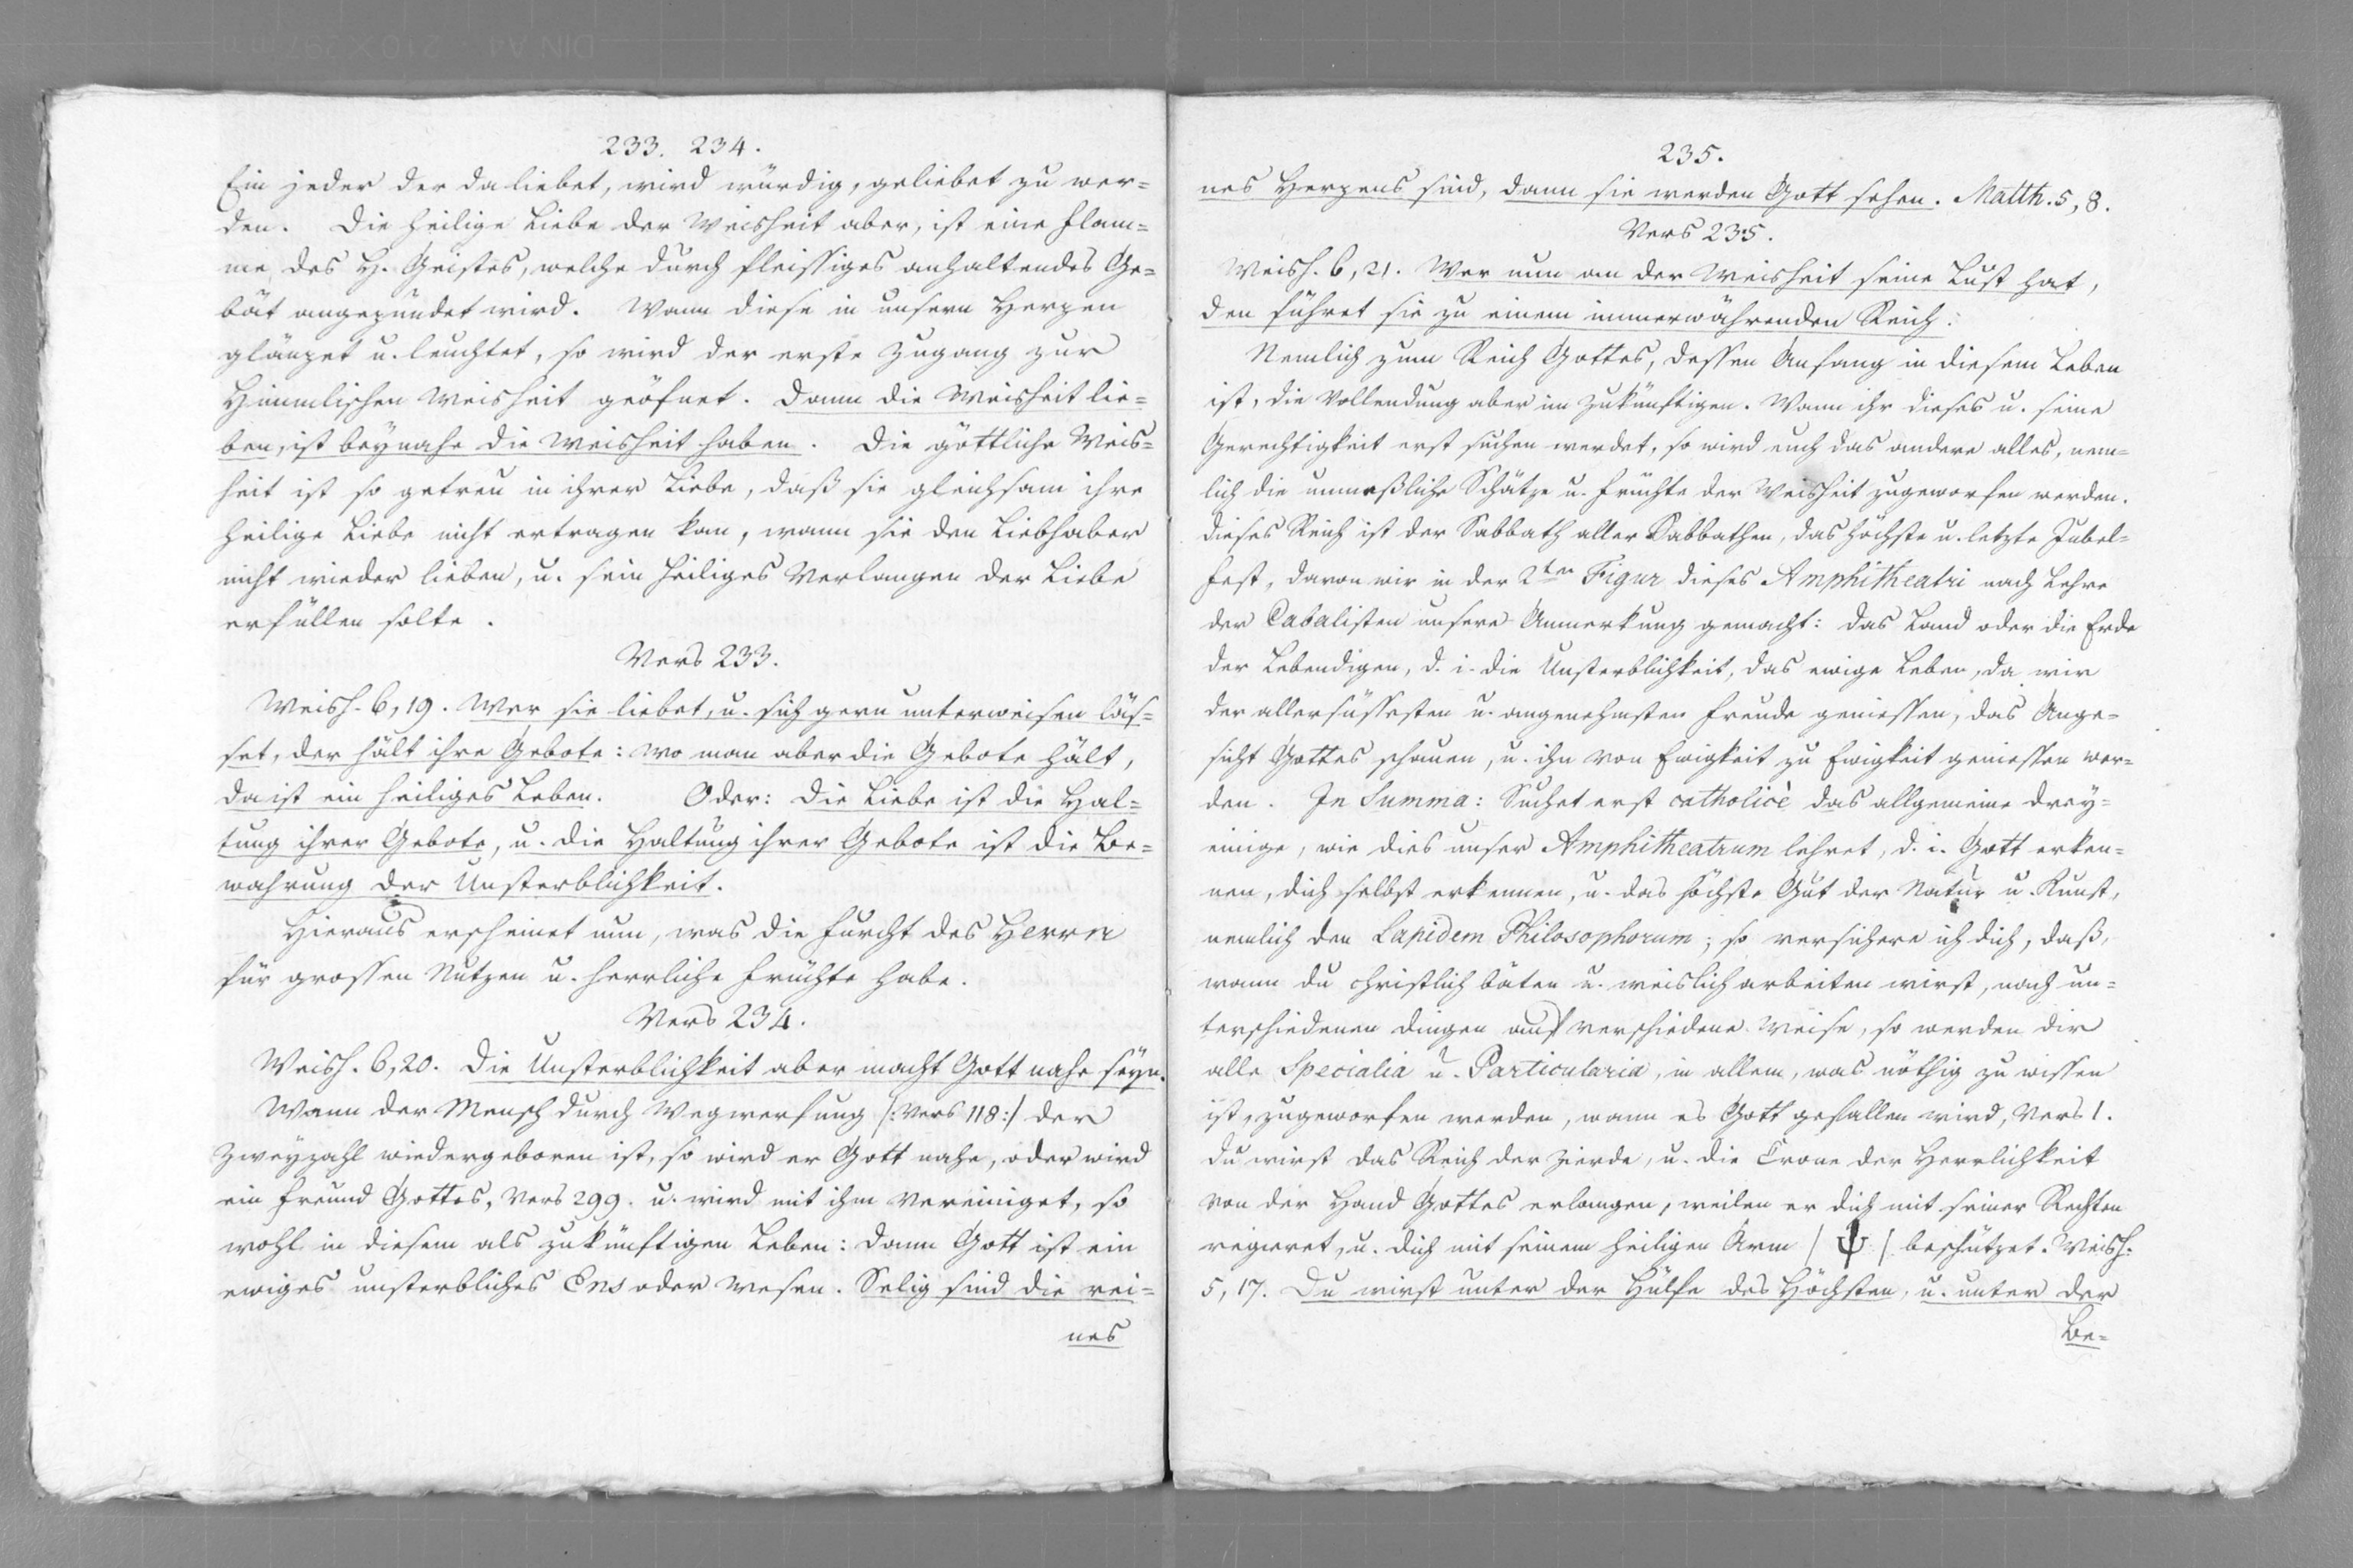 233. 234.
Ein jeder der da liebet, wird würdig, geliebet zu wer=
den. Die heilige Liebe der Weisheit aber, ist eine Flam=
me des H. Geistes, welche durch fleissiges anhaltendes Ge=
bät angezündet wird. Wann diese in unsern Herzen
glänzet u. leuchtet, so wird der erste Zugang zur
Himmlischen Weisheit geöfnet. Dann die Weisheit lie=
ben, ist beynahe die Weisheit haben. Die göttliche Weis=
heit ist so getreu in ihrer Liebe, daß sie gleichsam ihre
heilige Liebe nicht ertragen kan, wann sie den Liebhaber
nicht wieder lieben, u. sein heiliges Verlangen der Liebe
erfüllen solte.
Vers 233.
Weish. 6, 19. Wer sie liebet, u. sich gern unterweisen läs=
set, der hält ihre Gebote: wo man aber die Gebote hält,
da ist ein heiliges Leben. Oder: Die Liebe ist die Hal=
tung ihrer Gebote, u. die Haltung ihrer Gebote ist die Be=
wahrung der Unsterblichkeit.
Hieraus erscheinet nun, was die Furcht des Herrn
für grossen Nutzen u. herrliche Früchte habe.
Vers 234.
Weish. 6, 20. Die Unsterblichkeit aber macht Gott nahe seyn.
Wann der Mensch durch Wegwerfung /: Vers 118 :/ der
Zweyzahl wiedergeboren ist, so wird er Gott nahe, oder wird
ein Freund Gottes, Vers 299. u. wird mit ihm vereiniget, so
wohl in diesem als zukünftigen Leben: Dann Gott ist ein
ewiges unsterbliches Ens oder Wesen. Selig sind die rei=
nes
235.
nes Herzens sind, dann sie werden Gott sehen. Matth. 5, 8.
Vers 235.
Weish. 6, 21. Wer nun an der Weisheit seine Lust hat,
den führet sie zu einem immerwährenden Reich.
Nemlich zum Reich Gottes, dessen Anfang in diesem Leben
ist, die Vollendung aber im zukünftigen. Wann ihr dieses u. seine
Gerechtigkeit erst suchen werdet, so wird euch das andere alles, nem=
lich die unmeßliche Schätze u. Früchte der Weisheit zugeworfen werden.
Dieses Reich ist der Sabbath aller Sabbathen, das höchste u. letzte Jubel=
fest, davon wir in der 2ten Figur dieses Amphitheatri nach Lehre
der Cabalisten unsere Anmerkung gemacht: Das Land oder die Erde
der Lebendigen, d. i. die Unsterblichkeit, das ewige Leben, da wir
der allersüssesten u. angenehmsten Freude geniessen, das Ange=
sicht Gottes schauen, u. ihn von Ewigkeit zu Ewigkeit geniessen wer=
den. In Summa: Suchet erst catholicè das allgemeine Drey=
einige, wie dies unser Amphitheatrum lehret, d. i. Gott erken=
nen, dich selbst erkennen, u. das höchste Gut der Natur u. Kunst,
nemlich den Lapidem Philosophorum; so versichere ich dich, daß,
wann du christlich bäten u. weislich arbeiten wirst, nach un=
terschiedenen Dingen auf verschiedene Weise, so werden dir
alle Specialia u. Particularia, in allem, was nöthig zu wissen
ist, zugeworfen werden, wann es Gott gefallen wird, Vers 1.
Du wirst das Reich der Zierde, u. die Crone der Herrlichkeit
von der Hand Gottes erlangen, weilen er dich mit seiner Rechten
regieret, u. dich mit seinem heiligen Arm / ψ / beschützet. Weish.
5, 17. Du wirst unter der Hülfe des Höchsten, u. unter der
Be=